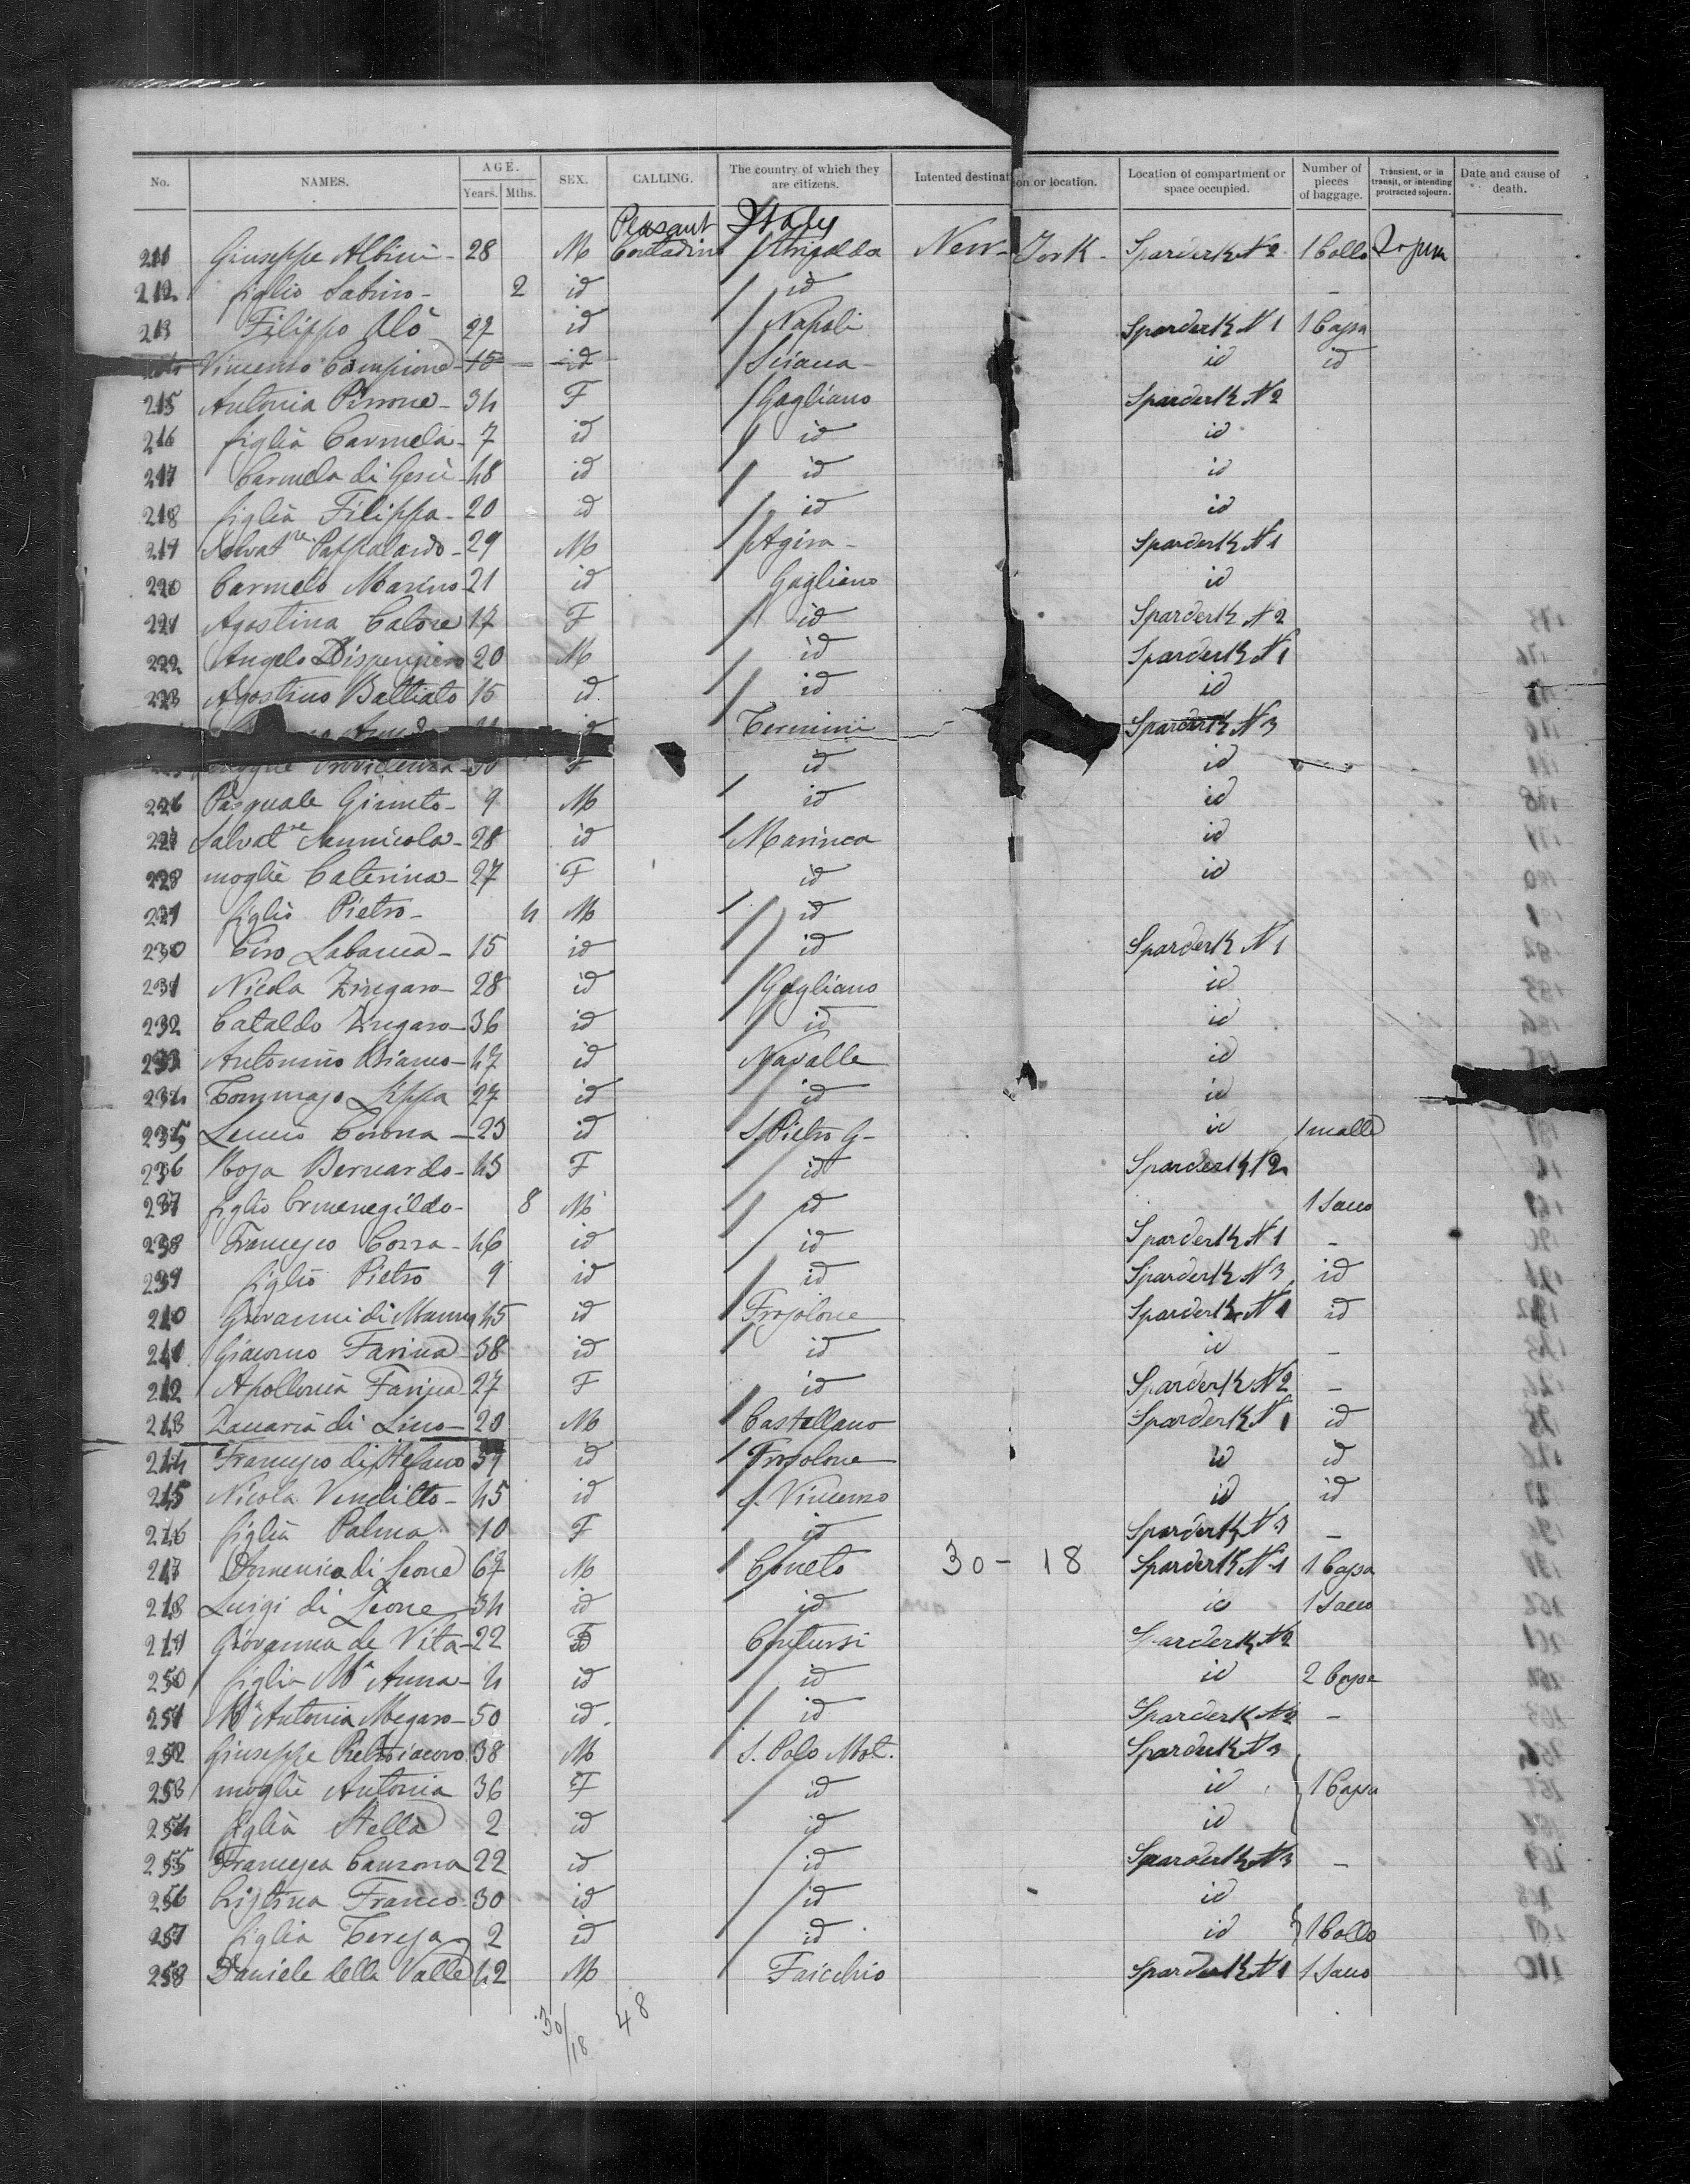 No. NAMES. AGE. Years. Mths. SEX. CALLING. The country of which they are citizens. Intented destination or location. Location of compartment or space occupied. Number of pieces of baggage. Transient, or in transit, or intending protracted sojourn. Date and cause of death.
Peasant Italy
211 Giuseppe Albini - 28 M Contadino New-York - Sparderk N 2 1 Collo
212 figlio Sabino - 2 id id -
213 Filippo Alò 22 id Napoli Sparderk N 1 1 Capa
Vincenzo Campione 15 - id Sciacca - id id
215 Antonia Pirrone - 34 F Gagliano Sparderk N 2
216 figlia Carmela - 7 id id id
217 Carmela di Gesù - 48 id id id
218 figlia Filippa - 20 id id id
219 Salvat re Pappalardo - 29 M Agira - Sparderk N 1
220 Carmelo Marino - 21 id Gagliano id
221 Agostina Calore 17 F id Sparderk N 2
222 Angelo 20 M id Sparderk N 1
223 Agostino Battiato 15 id id id
id Termini Sparderk N 3
Providenza - 30 F id id
226 Pasquale Giunto - 9 M id id
227 Salvat re Sannicola - 28 id Marinca id
228 moglie Caterina - 27 F id id
229 figlio Pietro - 4 M id
230 Ciro Labarca - 15 id id Sparderk N 1
231 Nicola Zingaro - 28 id Gagliano id
232 Cataldo Zingaro - 36 id id id
233 Antonino - 47 id Navalle id
234 Tommaso Lippa 27 id id id
235 Corona - 23 id S. Pietro G - id 1 malle
236 Rosa Bernardo - 45 F id Sparderk N 2
237 figlio Ermenegildo - 8 M id 1 Sacco
238 Francesco Cossa - 46 id id Sparderk N 1 -
239 figlio Pietro 9 id id Sparderk N 3 id
240 Giovanni di Manno 45 id Frosolone Sparderk N 1 id
241 Giacomo Farina - 38 id id id -
242 Apollonia Farina 27 F id Sparderk N 2 -
243 Zaccaria di Lino - 20 M Castellano Sparderk N 1 id
244 Francesco di Stefano 37 id Frosolone id id
245 Nicola Venditto - 45 id S. Vincenzo id id
246 figlia Palma 10 F id Sparderk N 3 -
247 Domenico di Leone 67 M Corleto 30 - 18 Sparderk N 1 1 Capa
248 Luigi di Leone 34 id id id 1 Sacco
249 Giovanna de Vita - 22 F Contursi Sparderk N 2
250 figlia Ma Anna - 4 id id id 2 Cape
251 Ma Antonia Megaro - 50 id id Sparderk N 2 -
252 Giuseppe Pietroiacovo 38 M S. Polo Mat. Sparderk N 3
253 moglie Antonia 36 F id id 1 Capa
254 figlia Stella 2 id id id
255 Francesca Canzona 22 id id Sparderk N 3 -
256 Cristina Franco - 30 id id id
257 figlia Teresa 2 id id id 1 Collo
258 Daniele della Valle 42 M Faicchio Sparderk N 1 1 Sacco
30/18 48